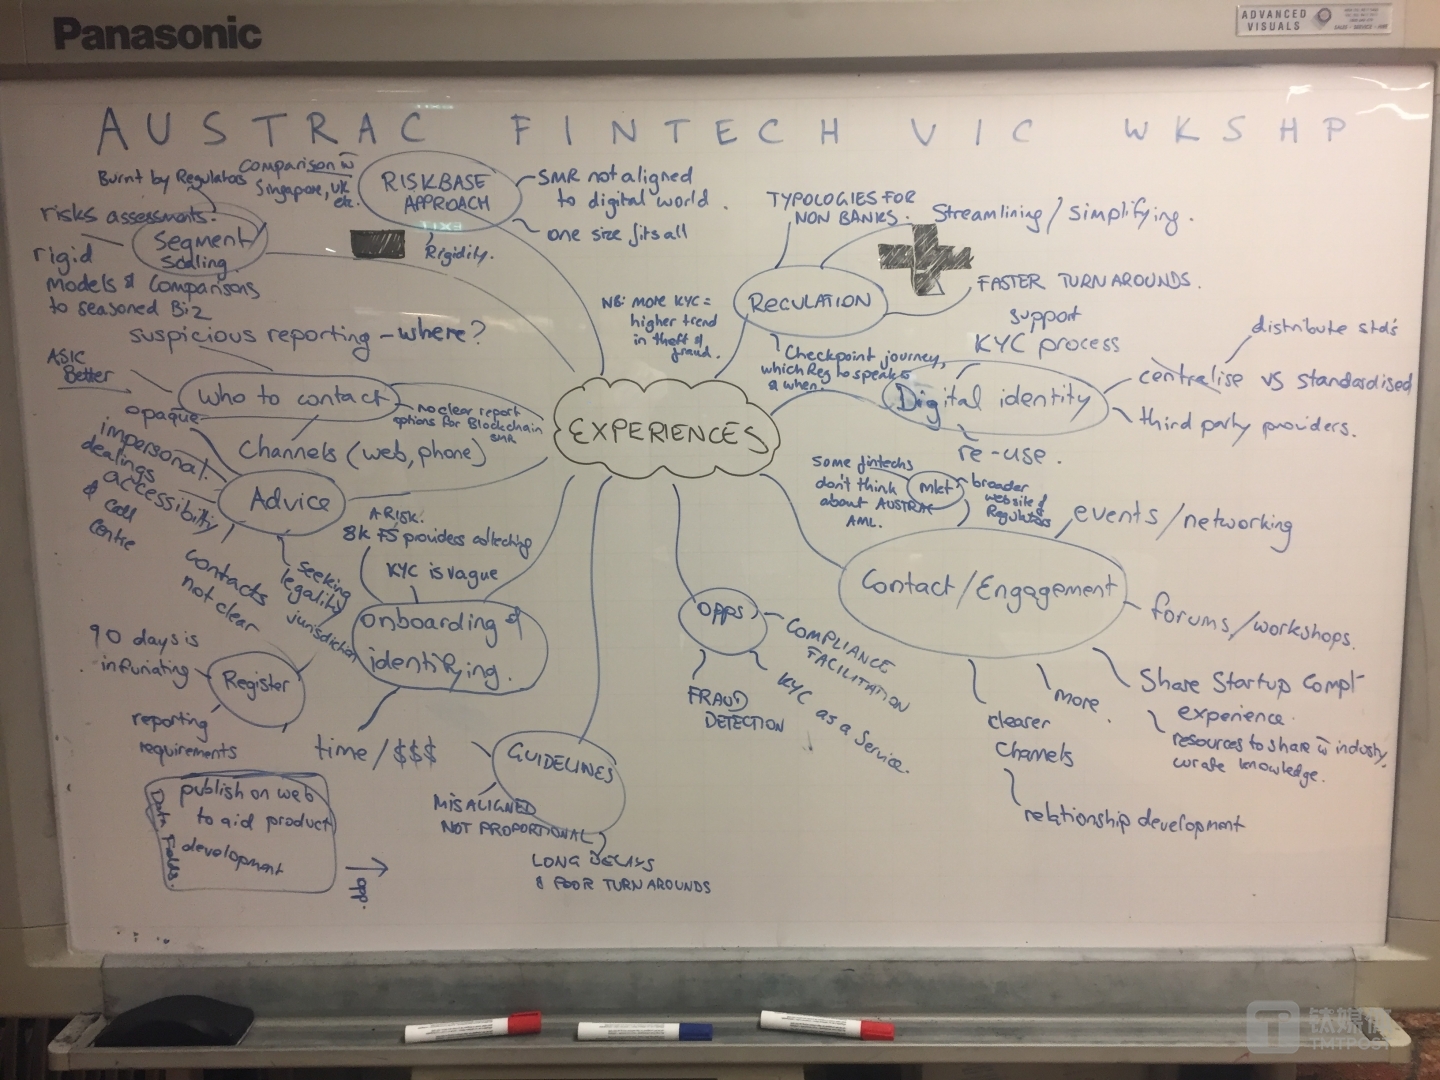 Panasonic
ADVANCED
VISUALS
AUSTRAC FINTECH VIC WKSHP
Burnt by Regulators
Comparison w
Singapore, UK
etc.
RISKBASE
APPROACH
SMR not aligned
to digital world
one size fits all
Rigidity.
risks assessments.
Segment/
Scaling.
rigid
models & Comparisons
to seasoned Biz
suspicious reporting - where?
ASIC
Better
Who to contact
no clear report
options for Blockchain
SMR
Channels (web, phone)
opaque
impersonal.
dealings
accessibility
& call
centre
Advice
contacts
not clear
seeking
legality
jurisdiction
A RISK.
8k FS providers collecting
KYC is vague
onboarding &
identifying.
time / $$$
90 days is
infuriating
Register
reporting
requirements
Data Fields.
publish on web
to aid product
development
opp.
GUIDELINES
MISALIGNED
NOT PROPORTIONAL
LONG DELAYS
& POOR TURNAROUNDS
EXPERIENCES
TYPOLOGIES FOR
NON BANKS.
Streamlining / simplifying.
REGULATION
FASTER TURNAROUNDS.
NB: more KYC =
higher trend
in theft &
fraud.
Checkpoint journey,
which Reg to speak to
& when.
support
KYC process
Digital identity
distribute std's
centralise vs standardised
third party providers.
re-use.
Some fintechs
don't think
about AUSTRAC
AML.
mkt
broader
website &
Regulators
events / networking
Contact / Engagement
forums / workshops.
Share Startup Compl
experience.
resources to share w industry,
curate knowledge.
more.
clearer
Channels
relationship development
opps
COMPLIANCE
FACILITATION
KYC as a Service.
FRAUD
DETECTION
钛媒体
TMTPOST